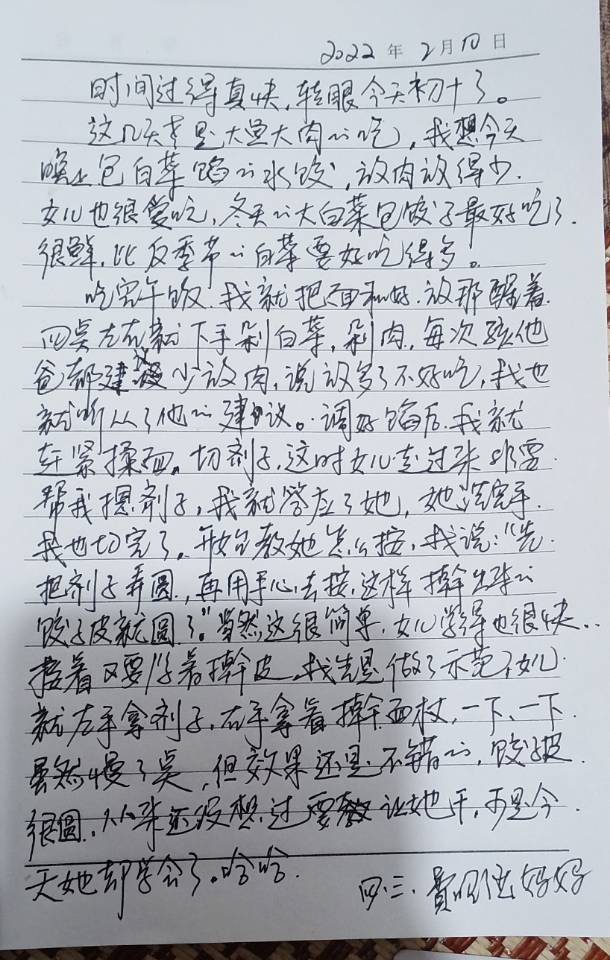 2022年2月10日
时间过得真快,转眼今天初十了。
这几天老是大鱼大肉的吃,我想今天
晚上包白菜馅的水饺,放肉放得少.
女儿也很爱吃,冬天的大白菜包饺子最好吃了.
很鲜,比反季节的白菜要好吃得多。
吃完午饭.我就把面和好.放那醒着.
四点左右就下手剁白菜,剁肉,每次孩他
爸都建议少放肉,说放多了不好吃,我也
就听从了他的建议。调好馅后.我就
赶紧揉面。切剂子,这时女儿走过来非要
帮我摁剂子,我就答应了她,她洗完手.
我也切完了。开始教她怎么按,我说:“先.
把剂子弄圆,再用手心去按.这样擀出来的
饺子皮就圆了。”当然这很简单.女儿学得也很快..
接着又要学着擀皮.我先是做了示范,女儿.
就左手拿剂子,右手拿着擀面杖,一下、一下.
虽然慢了点,但效果还是不错的,饺子皮.
很圆.从来还没想过要让她干,可是今.
天她却学会了。哈哈.
四.三.费 佳妈妈